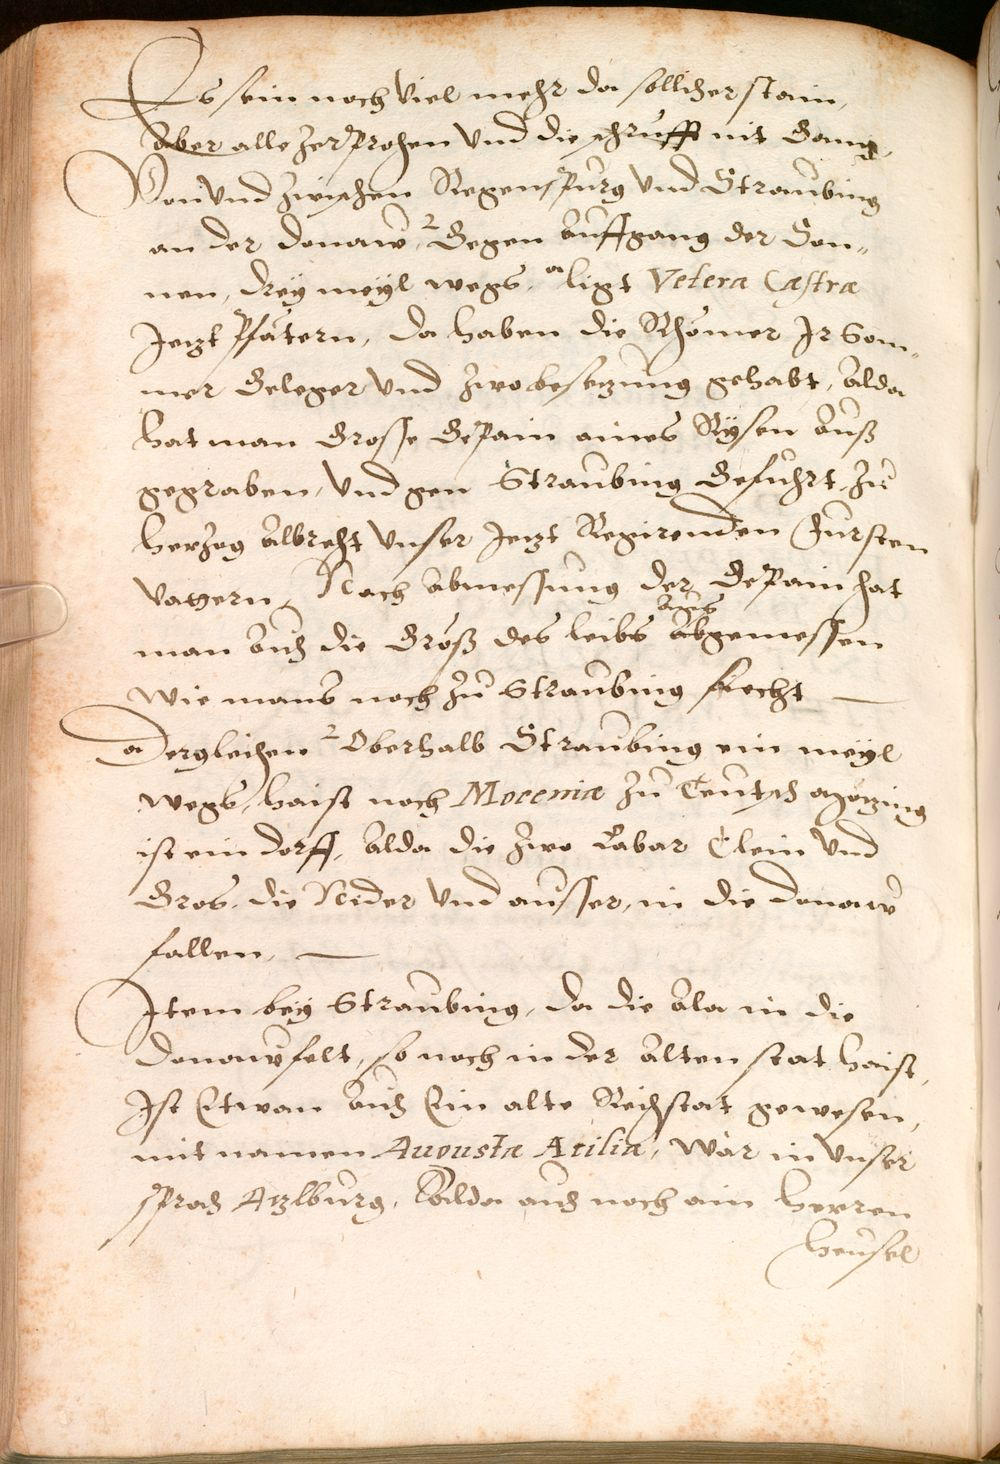 Es sein noch viel mehr da sollicher stain,
Aber alle zerprochen vnd die schrufft nit Ganng,
Von vnd zwischen Regenspurg vnd Straubing
an der donaw, 2 Gegen Auffgang der Son„
nen, drey meyl wegs, a ligt Vetera Castra
Jetzt Pfätern, da haben die Rhömer Ir Som„
mer Geleger vnd zwo besetzung gehabt, Alda
hat man Grosse Gepain aines Rysen Auß
gegraben, vnd gen Straubing Gefuhrt, zu
herzog Albrecht vnser Jetzt Regirenden Fürsten
vattern, Nach Abmessung der Gepain hat
man Auch die Groß des leibs Abgemessen
Wie mans noch zu Straubing siecht —
a Dergleichen 2 Oberhalb Straubing ein meyl
Wegs, haist noch Mocenia zu Teutsch Mözing
ist ein dorff, Alda die zwo Labar Clein vnd
Gros, die Nider vnd ausser, in die donaw
fallen, —
Item bey Straubing, da die Ala in die
donaw felt, so noch in der Alten stat haist,
Ist Etwan Auch Ein alte Reichstat gewesen,
mit namen Augusta Acilia, War in vnser
sprach Atzlburg, Alda auch noch ain herren
heusel